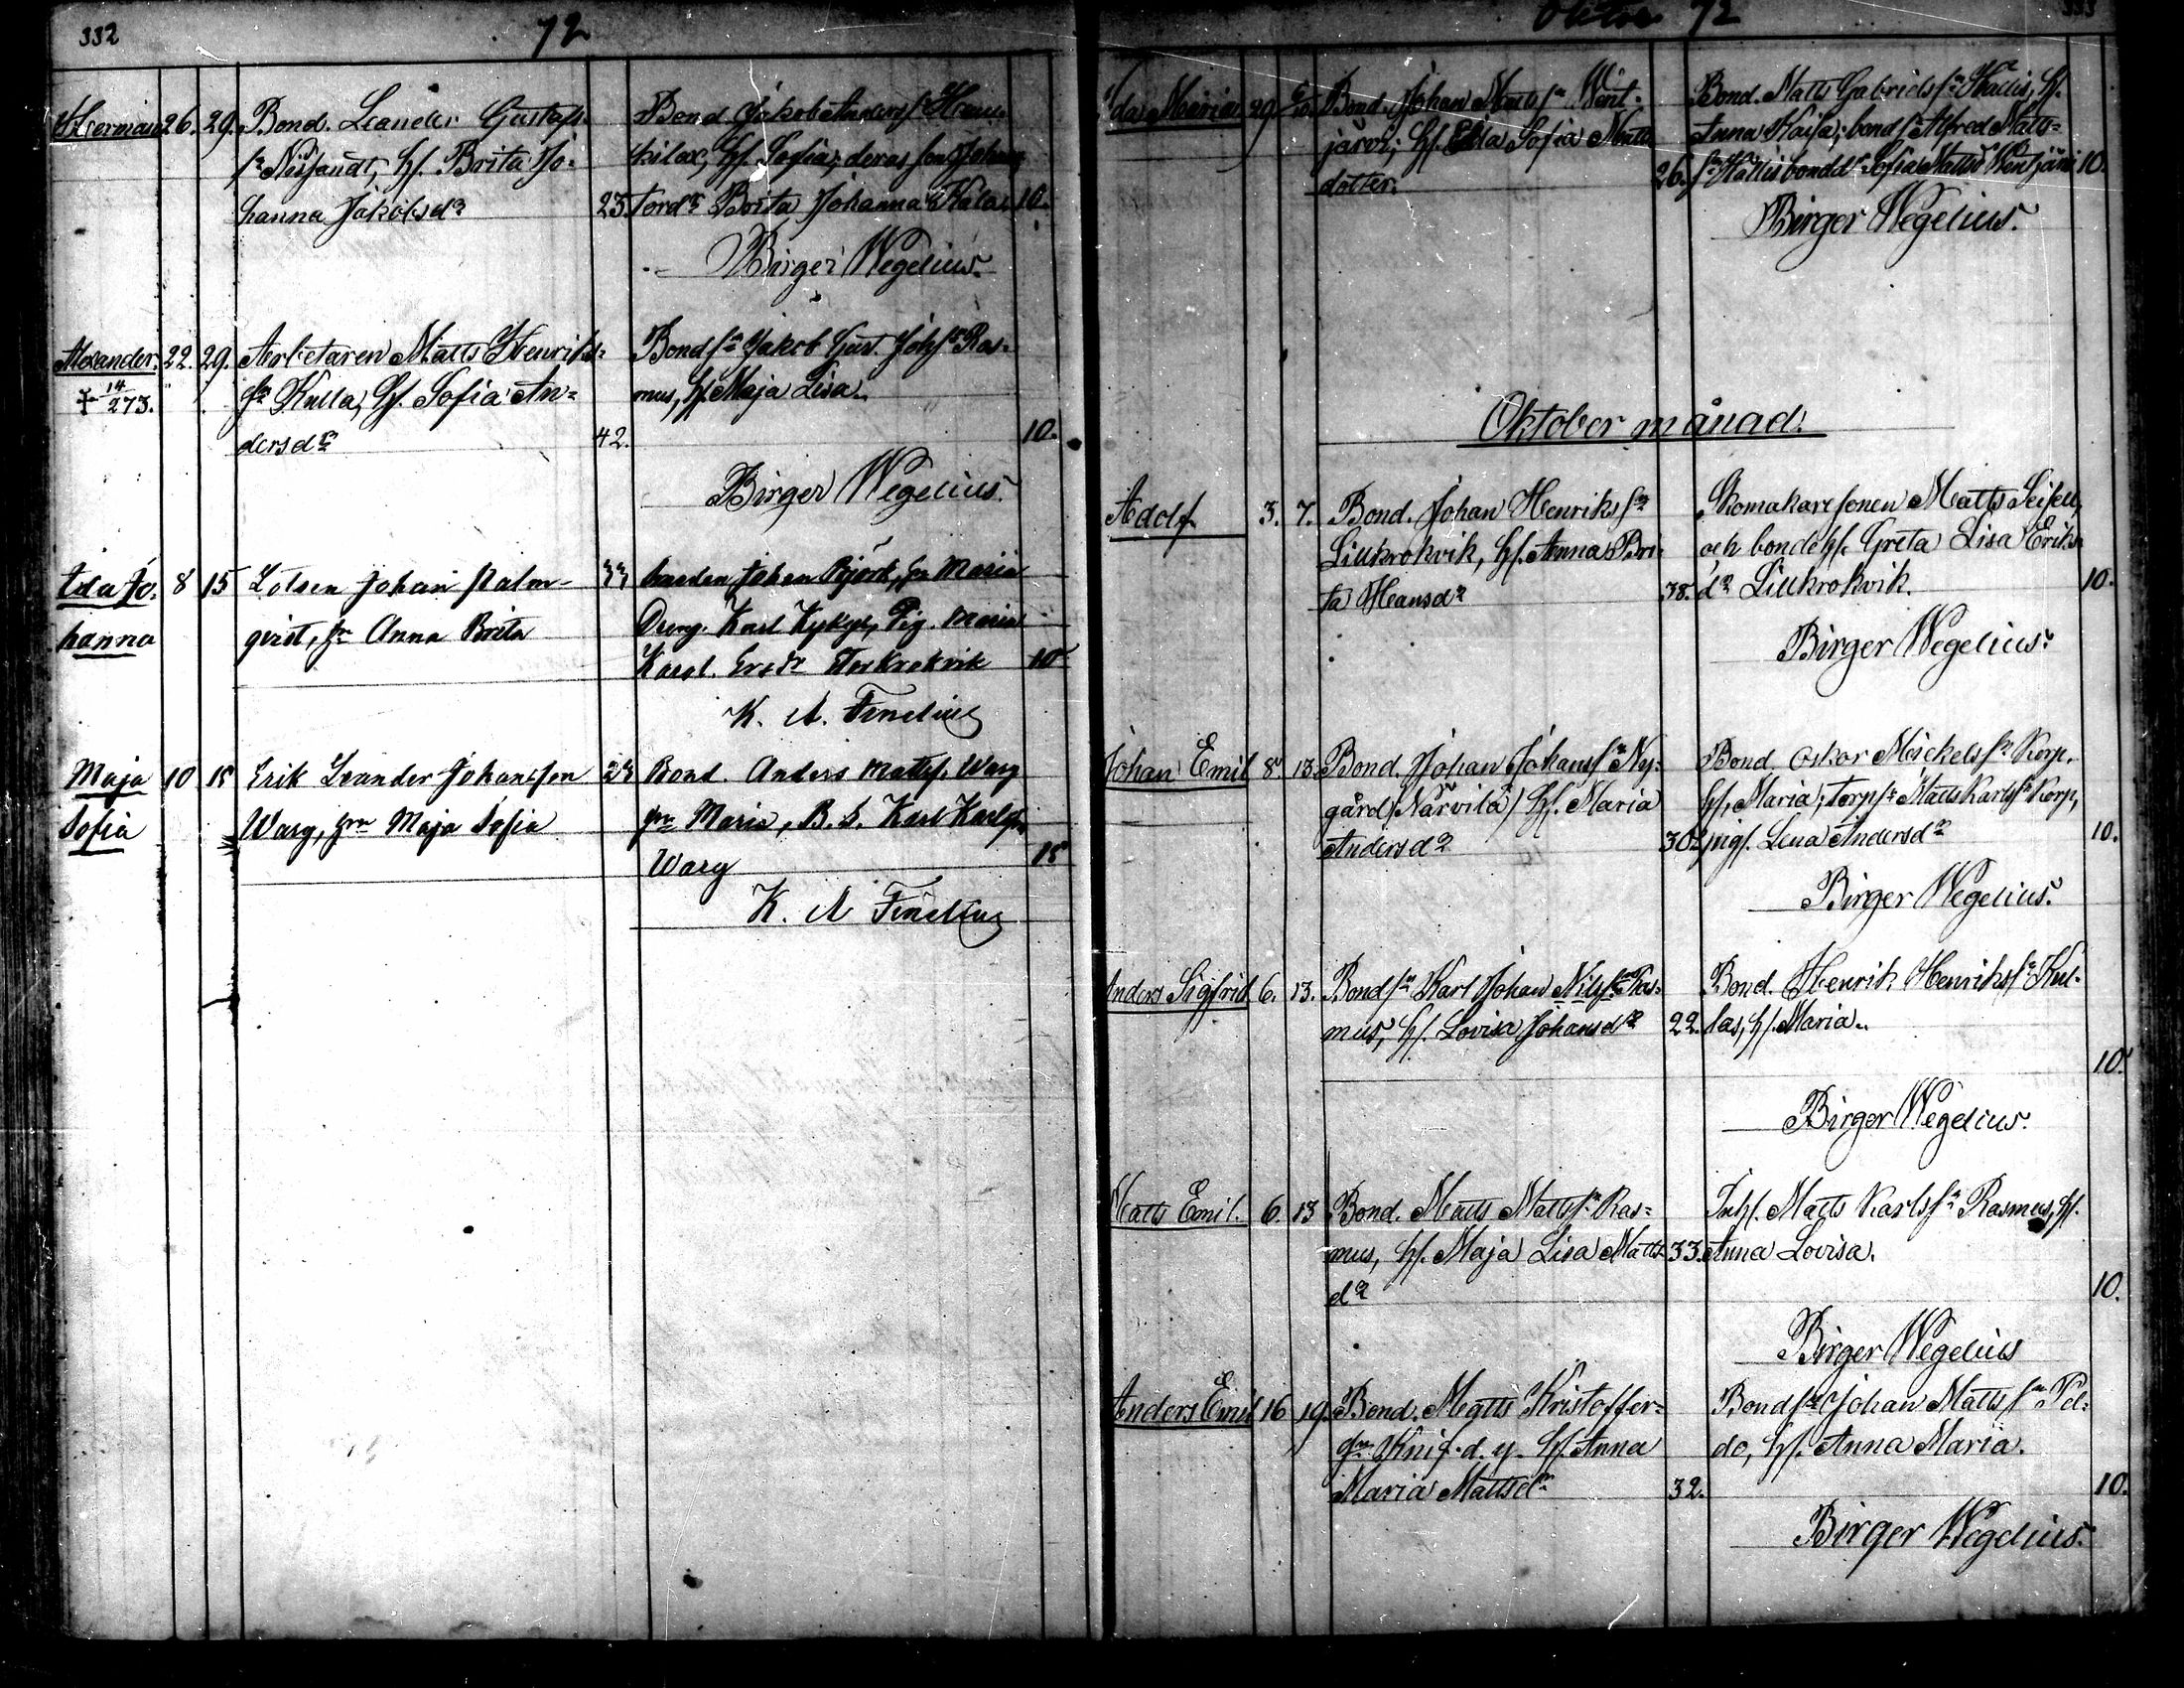 332
72
Herman 26. 29. Bond. Leander Gustafs
sn Nissandt, h. Brita Jo-
hanna Jakobsdr 23.
Bond Jakob Anders sn
kilax, h. Sofia; deras son Johan,
tordr Brita Johanna 10.
Birger Wegelius.
Alexander. 22. 29. Arbetaren Matts Henriks-
sn Kulla, h. Sofia An-
dersdr 42.
† 14/2 73.
Bondsn Jakob Gust. Johsn Ras-
mus, h. Maja Lisa.
10.
Birger Wegelius.
Ida Jo- 8 15 Lotsen Johan Palm-
hanna
qvist, hr Anna Brita
Johan Björk, hr Maria
Dreng. Karl Kykyri, Pig. Maria
Karol. Ersdr Storkrokvik 10
K. A. Finelius
Maja 10 15 Erik Leander Johansson 24
Sofia
Warg, hru Maja Sofia
Bond. Anders Mattss. Warg
hru Maria, B. S. Karl Karlss.
Warg 15
K. A Finelius
Oktober 72
333
Ida Maria 29 6/10. Bond. Johan Matts sn Went-
järvi; h. Ulla Sofia Matts
dotter. 26.
Bond. Matts Gabriels sn Kallis, h.
Anna Kaisa; bondsn Alfred Matts-
sn Kallis bonddr Sofia Mattsdr Wentjärvi 10.
Birger Wegelius.
Oktober månad.
Adolf 3. 7. Bond. Johan Henriks sn
Lillkrokvik, h. Anna Bri-
ta Hansdr 38.
Skomakaresonen Matts Seisell,
och bondeh. Greta Lisa Eriks
dr Lillkrokvik. 10.
Birger Wegelius.
Johan Emil 8 13. Bond. Johan Johans sn Ny-
gård /Närvilä/ h. Maria
Andersdr 30½
Bond. Oskar Mickels sn Korp,
h. Maria; torpsn Matts Karls sn Korp,
pig. Lena Andersdr 10.
Birger Wegelius.
Anders Sigfrid 6. 13. Bondsn Karl Johan Nilsson Ras-
mus, h. Lovisa Johansdr 22.
Bond. Henrik Henriks sn Kul-
las, h. Maria.
10.
Birger Wegelius.
Matts Emil. 6. 13 Bond. Matts Matts sn Ras-
mus, h. Maja Lisa Matts- 33.
dr
Inh. Matts Karls sn Rasmus, h.
Anna Lovisa.
10.
Birger Wegelius
Anders Emil 16 19. Bond. Matts Kristoffer-
sn Knif d. y. h. Anna
Maria Mattsdr 32.
Bondsn Johan Matts sn Pel-
do, h. Anna Maria.
10.
Birger Wegelius.